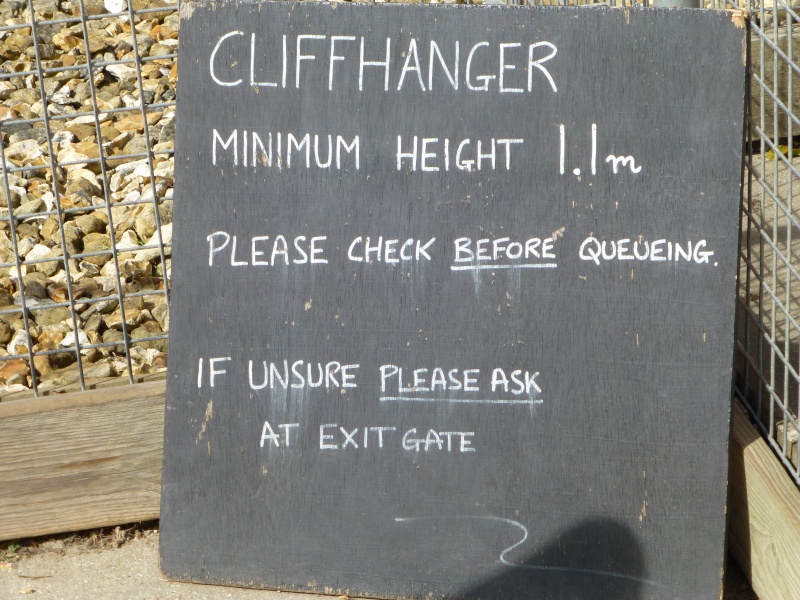 CLIFFHANGER
MINIMUM HEIGHT 1.1m
PLEASE CHECK BEFORE QUEUEING.
IF UNSURE PLEASE ASK
AT EXIT GATE